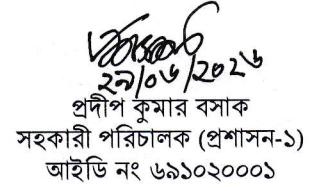 ২৯/০৬/২০২৬
প্রদীপ কুমার বসাক
সহকারী পরিচালক (প্রশাসন-১)
আইডি নং ৬৯১০২০০০১